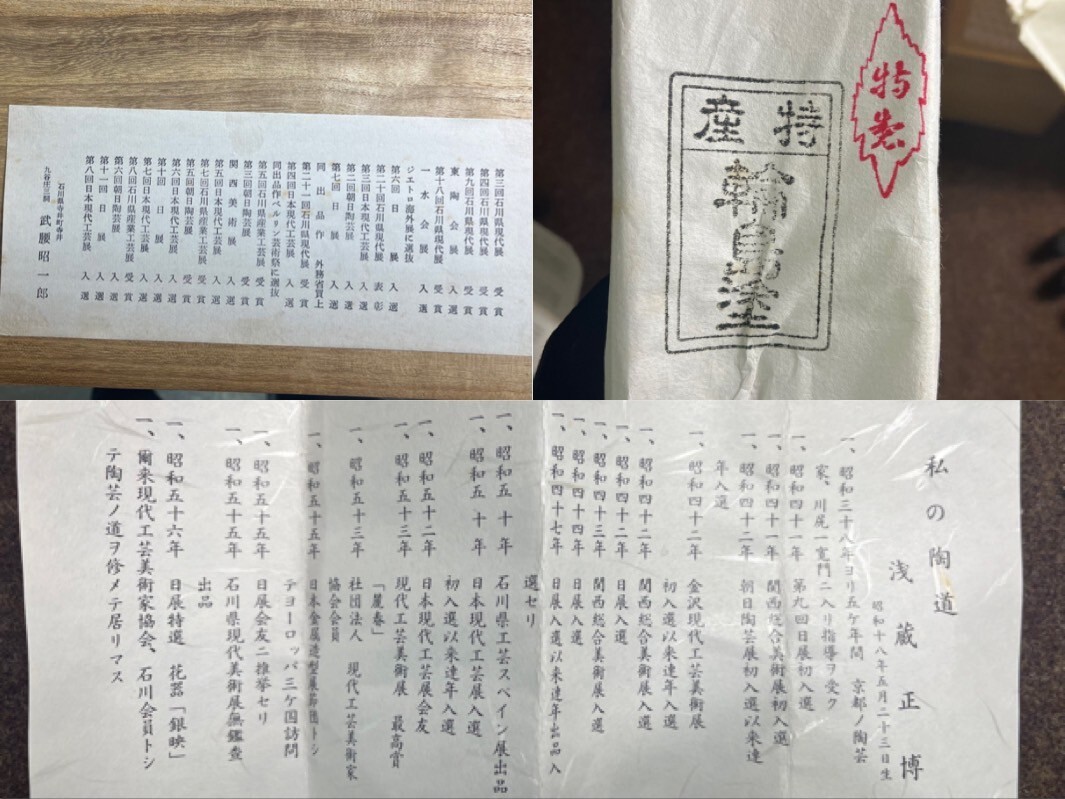 第三回石川県現代展 受賞
第四回石川県現代展 受賞
第九回石川県現代展 受賞
東陶会展 入選
第十八回石川県現代展 受賞
一水会展 入選
ジエトロ海外展に選抜
第六回日展 入選
第二十回石川県現代展 表彰
第三回日本現代工芸展 入選
第二回朝日陶芸展 入選
第七回日展 入選
同出品作 外務省買上
第二十一回石川県現代展 受賞
第四回日本現代工芸展 入選
同出品作ベルリン芸術祭に選抜
第五回石川県産業工芸展 受賞
第三回朝日陶芸展 受賞
関西美術展 入選
第五回日本現代工芸展 入選
第七回石川県産業工芸展 受賞
第五回朝日陶芸展 受賞
第六回日本現代工芸展 入選
第十回日展 入選
第七回日本現代工芸展 入選
第八回石川県産業工芸展 受賞
第六回朝日陶芸展 入選
第十一回日展 入選
第八回日本現代工芸展 入選
石川県寺井町寺井
九谷庄三窯 武腰昭一郎
特製
特産
輪島塗
私の陶道
浅蔵正博
昭和十八年五月二十三日生
一、昭和三十八年ヨリ五ケ年間 京都ノ陶芸
家、川尻一寛門ニ入リ指導ヲ受ク
一、昭和四十一年 第九回日展初入選
一、昭和四十一年 関西総合美術展初入選
一、昭和四十二年 朝日陶芸展初入選以来連
年入選
一、昭和四十二年 金沢現代工芸美術展
初入選以来連年入選
一、昭和四十二年 関西総合美術展入選
一、昭和四十二年 日展入選
一、昭和四十三年 関西総合美術展入選
一、昭和四十四年 日展入選
一、昭和四十七年 日展入選以来連年出品入
選セリ
一、昭和五十年 石川県工芸スペイン展出品
一、昭和五十年 日本現代工芸展入選
初入選以来連年入選
一、昭和五十二年 日本現代工芸展会友
一、昭和五十三年 現代工芸美術展 最高賞
「麗春」
一、昭和五十三年 社団法人 現代工芸美術家
協会会員
一、昭和五十五年 日本金属造型展師団トシ
テヨーロッパ三ケ国訪問
一、昭和五十五年 日展会友ニ推挙セリ
一、昭和五十五年 石川県現代美術展無鑑査
出品
一、昭和五十六年 日展特選 花器「銀映」
一、爾来現代工芸美術家協会、石川会員トシ
テ陶芸ノ道ヲ修メテ居リマス